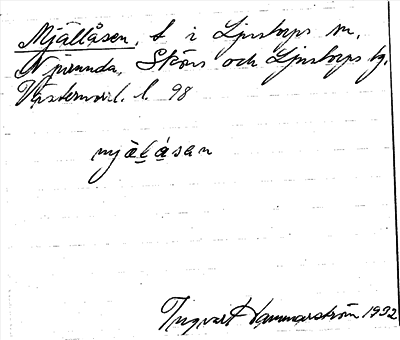 Mjällåsen, t i Ljustorps sn,
Njurunda, Sköns och Ljustorps tg.
Västernorrl. l. 98
mjälåsan
Ingvart Hammarström 1932